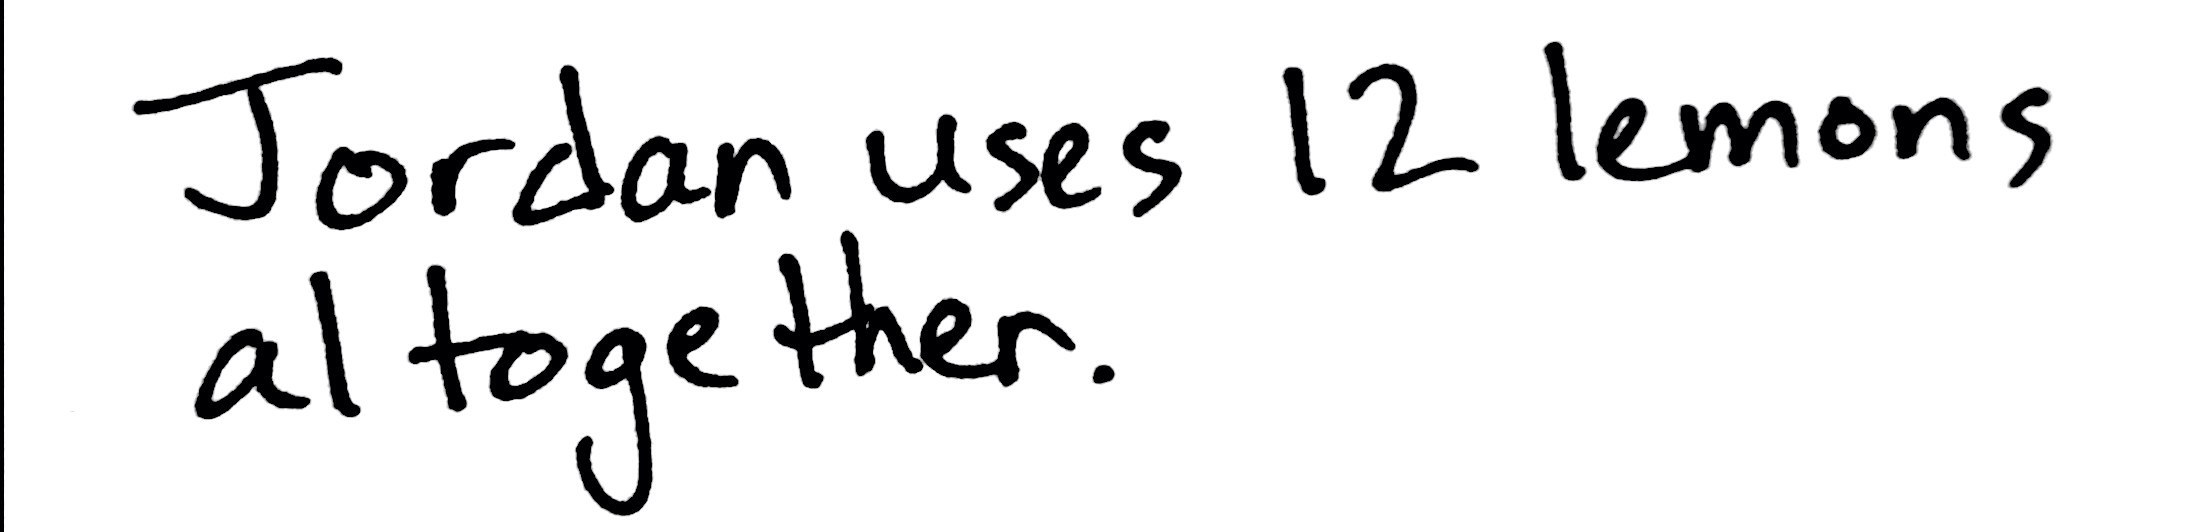 Jordan uses 12 lemons
altogether.